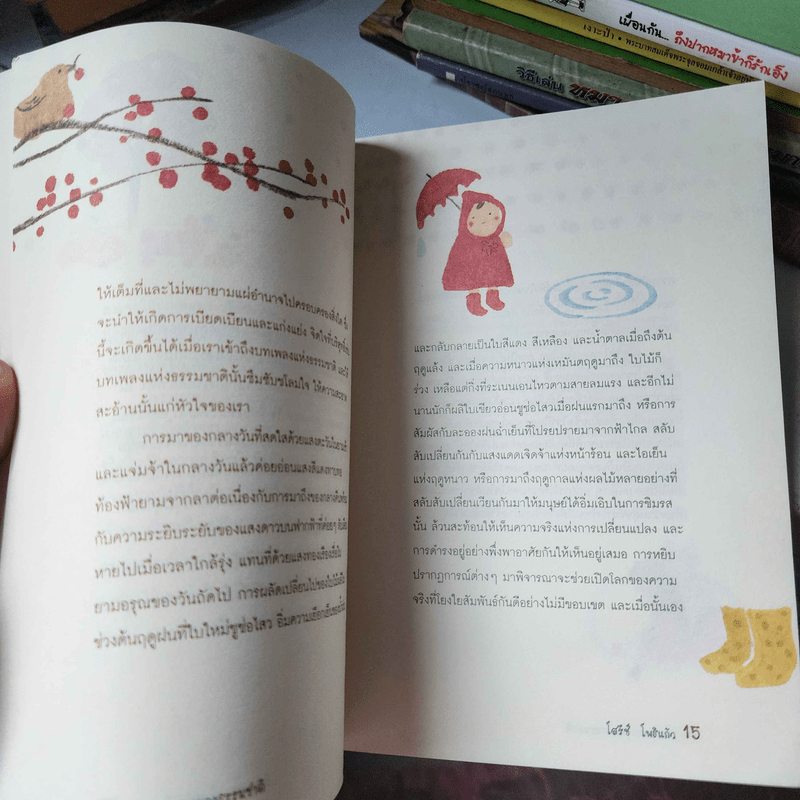 เพื่อนกัน... ถึงปากหมาข้าก็รักเอ็ง
เงาะป่า • พระบาทสมเด็จพระจุลจอมเกล้าเจ้าอยู่หัว
วิธีเล่น
ให้เต็มที่และไม่พยายามแผ่อำนาจไปครอบครองสิ่งใด
จะนำให้เกิดการเบียดเบียนและแก่งแย่ง จิตใจที่
นี้จะเกิดขึ้นได้เมื่อเราเข้าถึงบทเพลงแห่งธรรมชาติ และ
บทเพลงแห่งธรรมชาตินั้นซึมซับชโลมใจ ให้ความ
สะอ้านนั้นแก่หัวใจของเรา
การมาของกลางวันที่สดใสด้วยแสงตะวันในยามเช้า
และแจ่มจ้าในกลางวันแล้วค่อยอ่อนแสงสีแดงทาบทอ
ท้องฟ้ายามจากลาต่อเนื่องกับการมาถึงของกลางคืน
กับความระยิบระยับของแสงดาวบนฟากฟ้าที่ค่อยๆ
หายไปเมื่อเวลาใกล้รุ่ง แทนที่ด้วยแสงทองเรืองเรื่อใน
ยามอรุณของวันถัดไป การผลัดเปลี่ยนไปของใบไม้
ช่วงต้นฤดูฝนที่ใบใหม่ชูช่อไสว อิ่มความเขียว
และกลับกลายเป็นใบสีแดง สีเหลือง และน้ำตาลเมื่อถึงต้น
ฤดูแล้ง และเมื่อความหนาวแห่งเหมันตฤดูมาถึง ใบไม้ก็
ร่วง เหลือแต่กิ่งที่ระเนนเอนไหวตามสายลมแรง และอีกไม่
นานนักก็ผลิใบเขียวอ่อนชูช่อไสวเมื่อฝนแรกมาถึง หรือการ
สัมผัสกับละอองฝนฉ่ำเย็นที่โปรยปรายมาจากฟ้าไกล สลับ
สับเปลี่ยนกันกับแสงแดดเจิดจ้าแห่งหน้าร้อน และไอเย็น
แห่งฤดูหนาว หรือการมาถึงฤดูกาลแห่งผลไม้หลายอย่างที่
สลับสับเปลี่ยนเวียนกันมาให้มนุษย์ได้อิ่มเอิบในการชิมรส
นั้น ล้วนสะท้อนให้เห็นความจริงแห่งการเปลี่ยนแปลง และ
การดำรงอยู่อย่างพึ่งพาอาศัยกันให้เห็นอยู่เสมอ การหยิบ
ปรากฏการณ์ต่างๆ มาพิจารณาจะช่วยเปิดโลกของความ
จริงที่โยงใยสัมพันธ์กันดีอย่างไม่มีขอบเขต และเมื่อนั้นเอง
โสรีช์ โพธิแก้ว 15